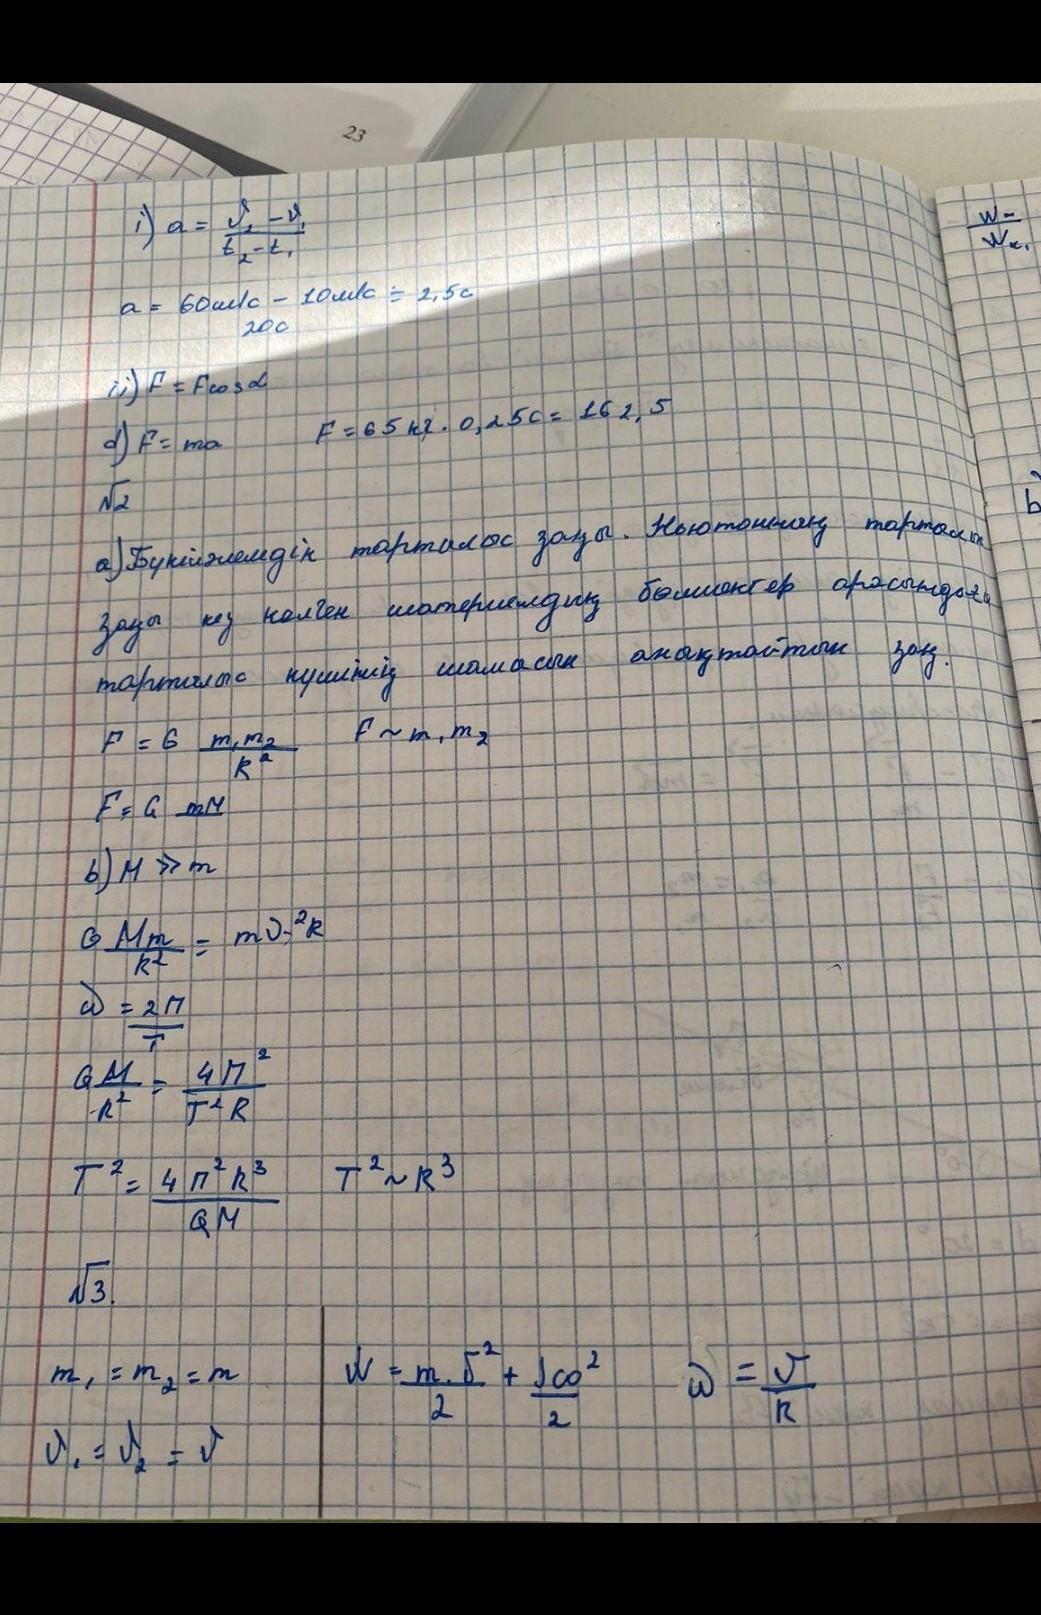 23
i) a = (v₂ - v₁)/(t₂ - t₁)
W =
Wк₁
a = (60м/с - 10м/с)/20с = 2,5с
ii) F = Fcosα
d) F = ma F = 65 кг · 0,25с = 162,5
b
№2
a) Бүкіләлемдік тартылыс заңы. Ньютонның тартылыс
заңы кез келген материялдың бөлшектер арасындағы
тартылыс күшінің шамасын анықтайтын заң.
F = G m₁m₂/R² F ~ m₁m₂
F = G mM
b) M >> m
G Mm/R² = mω²R
ω = 2П/T
GM/R² = 4П²/T²R
T² = 4П²R³/GM T² ~ R³
№3.
m₁ = m₂ = m W = m·υ²/2 + Jω²/2 ω = υ/R
υ₁ = υ₂ = υ